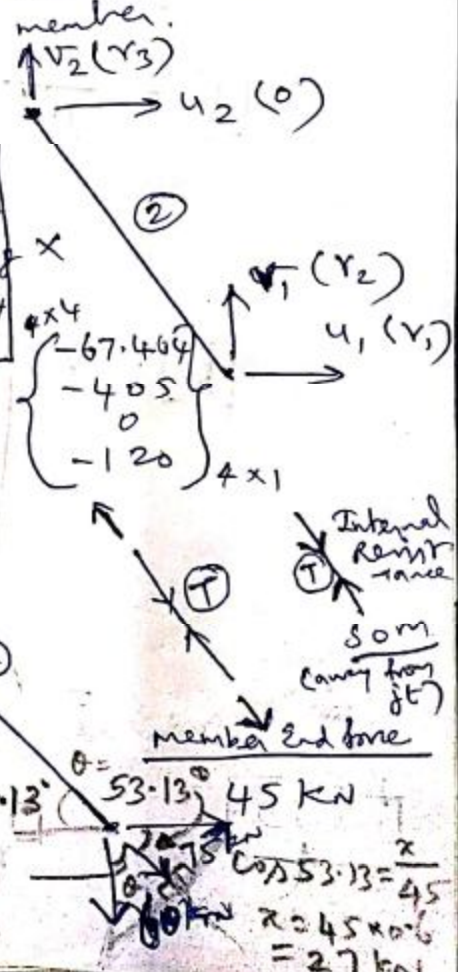 member.
v2 (r3)
u2 (0)
②
x
v1 (r2)
4x4
u1 (r1)
-67.464
-405
0
-120
4x1
Internal
Resist
ance
T
T
som
(away from
jt)
member End force
θ=
53.13°
45 KN
.13°
75 kN
cos 53.13 = x/45
θ
60 kN
x = 45 x 0.6
= 27 kN